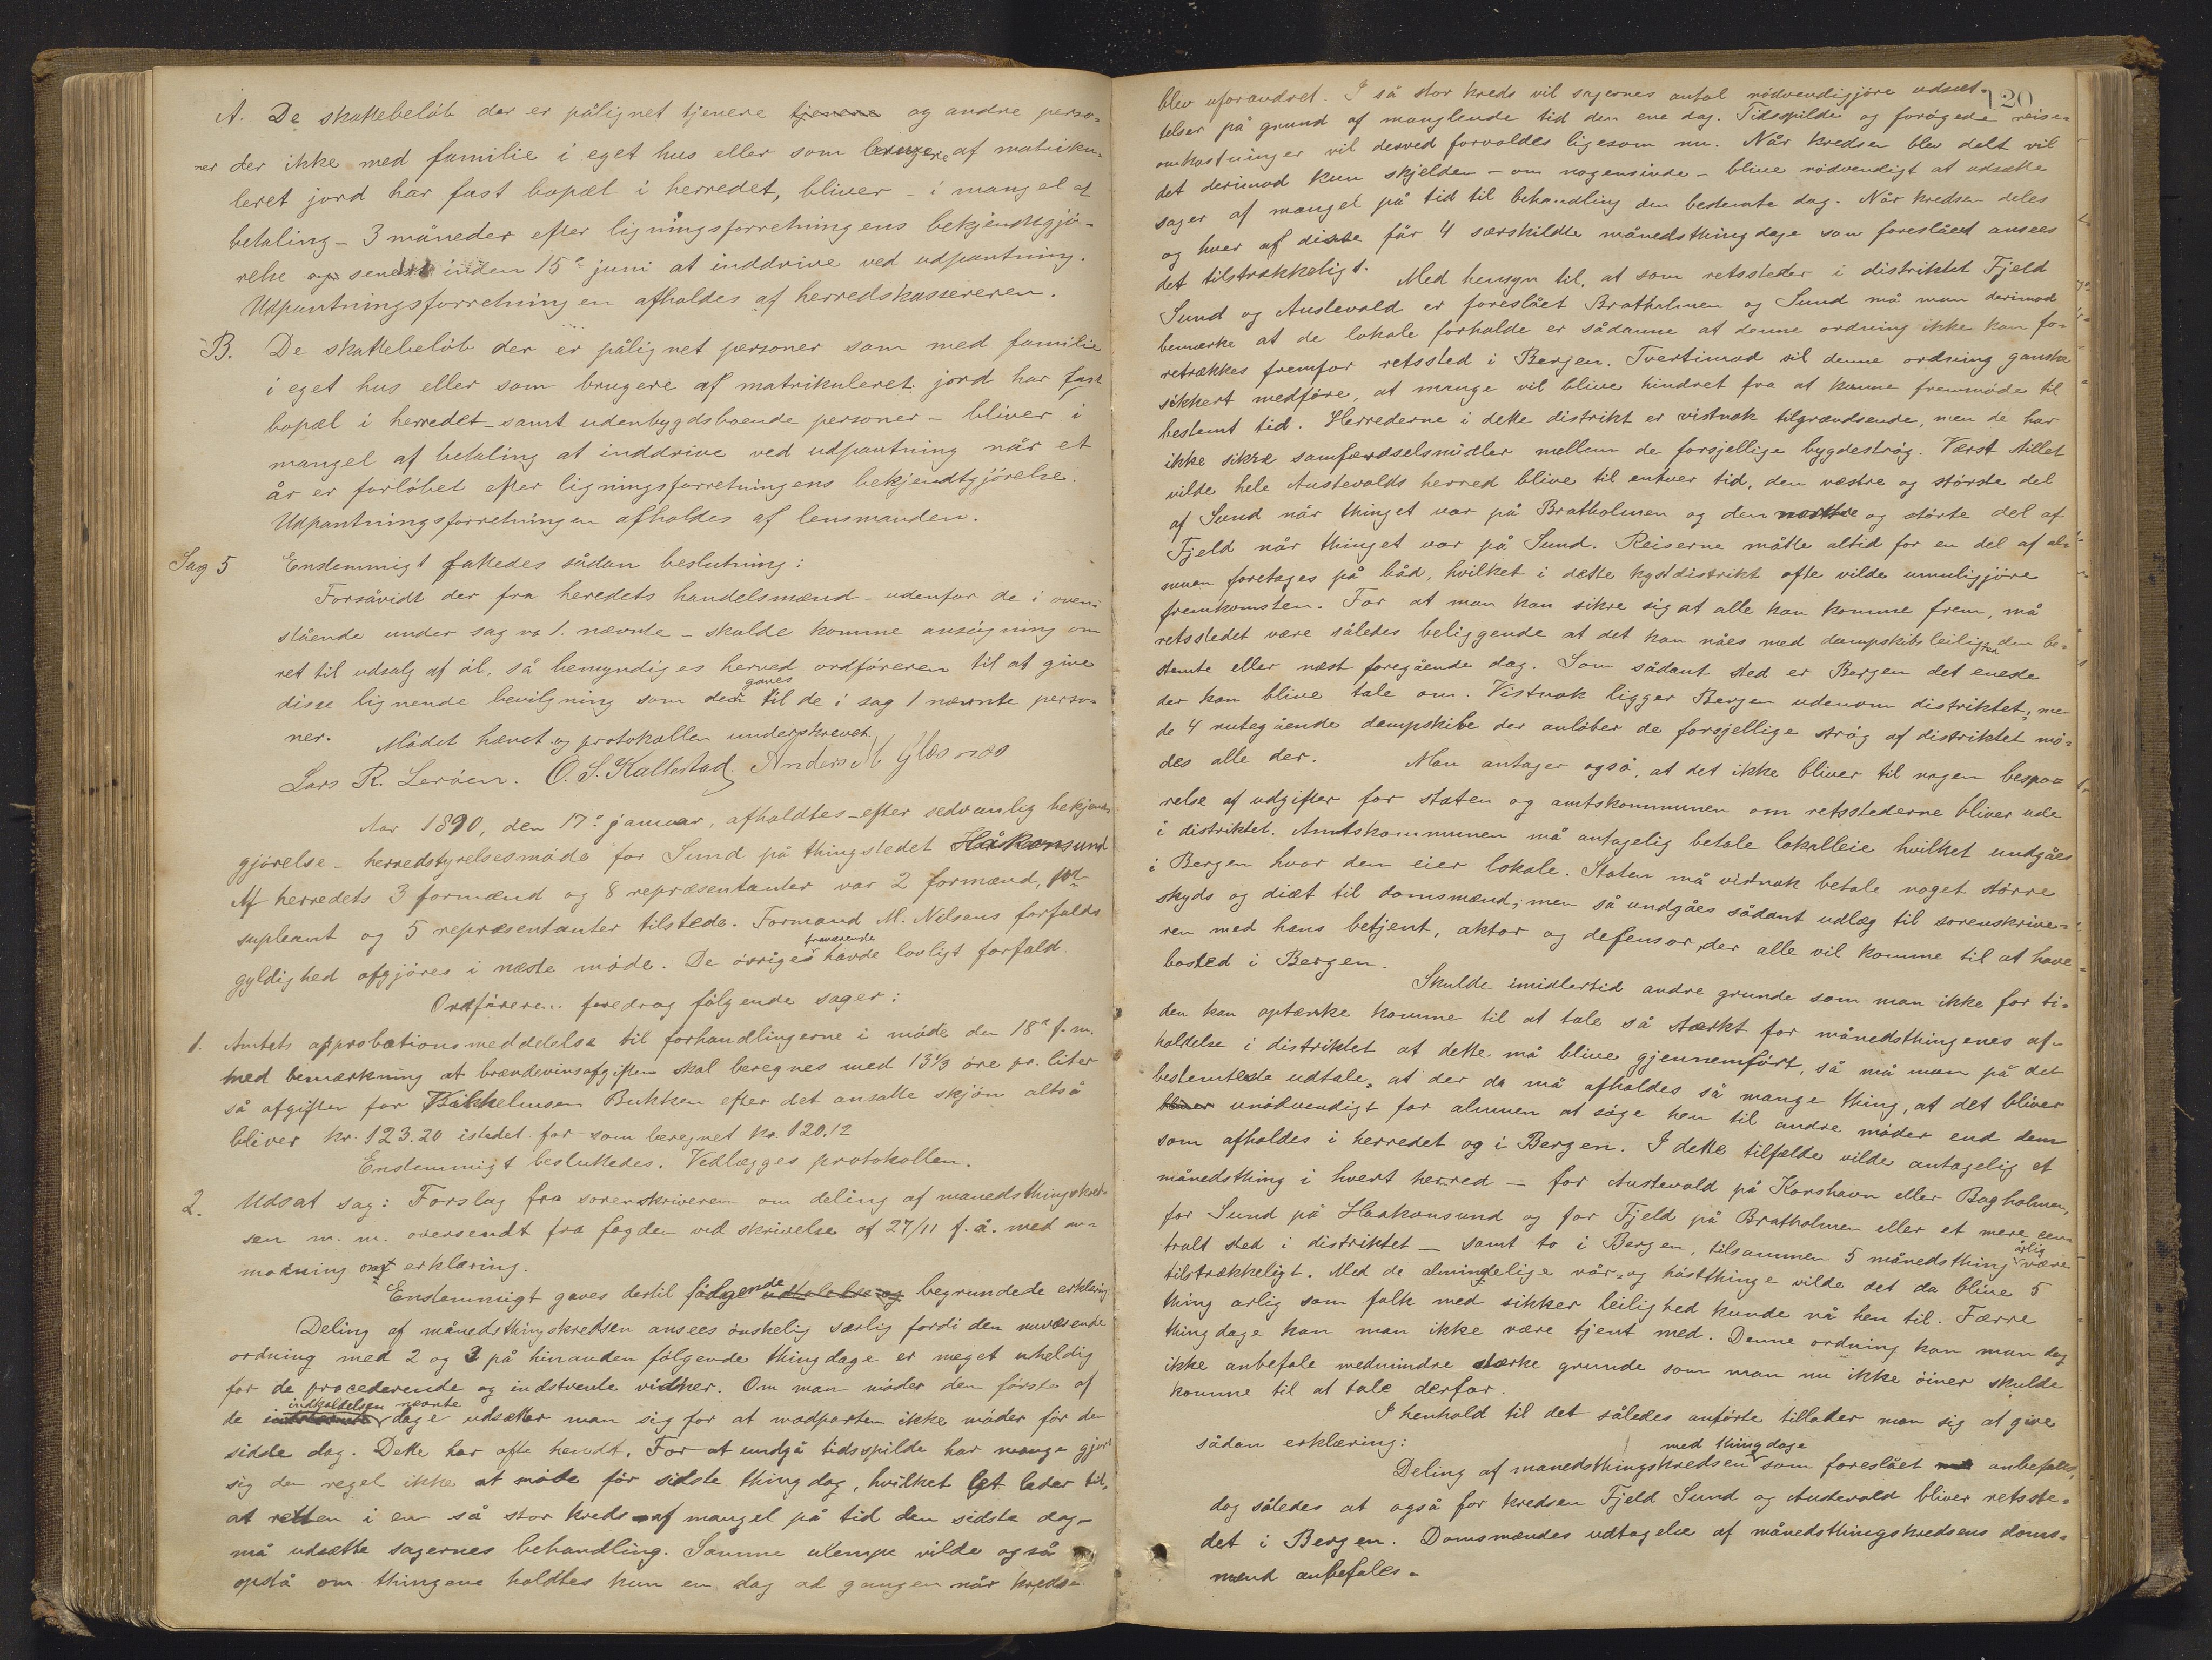 A. De skattebeløb der er pålignet tjenere tjenere og andre perso-
ner der ikke med familie i eget hus eller som brugere af matriku-
leret jord har fast bopæl i herredet, bliver - i mangel af
betaling - 3 måneder efter ligningsforretningens bekjendtgjø-
relse og senest inden 15de juni at inddrive ved udpantning.
Udpantningsforretningen afholdes af herredskassereren.
B. De skattebeløb der er pålignet personer som med familie
i eget hus eller som brugere af matrikuleret jord har fast
bopæl i herredet - samt udenbygdsboende personer - bliver i
mangel af betaling at inddrive ved udpantning når et
år er forløbet efter ligningsforretningens bekjendtgjørelse.
Udpantningsforretningen afholdes af lensmanden.
Sag 5 Enstemmigt fattedes sådan beslutning:
Forsåvidt der fra heredets handelsmænd - udenfor de i oven-
stående under sag no 1. nævnte - skulde komme ansøgning om
ret til udsalg af øl, så bemyndiges herved ordføreren til at give
disse lignende bevilgning som den gaves til de i sag 1 nævnte perso-
ner. Mødet hævet og protokollen underskrevet
Lars R. Lerøen. O. S. Kallestad. Anders M Glæsnæs
Aar 1890, den 17de januar, afholdtes - efter sedvanlig bekjendt-
gjørelse - herredstyrelsesmøde for Sund på thingstedet Håkonsund
Af herredets 3 formænd og 8 repræsentanter var 2 formænd,
supleant og 5 repræsentanter tilstede. Formand M. Nilsens forfalds
gyldighed afgjøres i næste møde. De øvriges fraværende havde lovligt forfald.
Ordføreren foredrog følgende sager:
1. Amtets approbationsmeddelelse til forhandlingerne i møde den 18de f. m.
med bemærkning at brændevinsafgiften skal beregnes med 13⅓ øre pr. liter
så afgiften for Bukken efter det ansatte skjøn altså
bliver kr. 123.20 istedet for som beregnet kr. 120.12
Enstemmigt besluttedes. Vedlægges protokollen.
2. Udsat sag: Forslag fra sorenskriveren om deling af månedsthingskred-
sen m. m. oversendt fra fogden ved skrivelse af 27/11 f. å. med an-
modning om erklæring.
Enstemmigt gaves dertil følgende udtalelse og begrundede erklæring
Deling af månedsthingskredsen ansees ønskelig særlig fordi den nuværende
ordning med 2 og 3 på hinanden følgende thingdage er meget uheldig
for de procederende og indstevnte vidner. Om man møder den første af
de indkaldelsen nævnte dage udsætter man sig for at modparten ikke møder før den
sidde dag. Dette har ofte hændt. For at undgå tidsspilde har mange gjort
sig den regel ikke at møde før sidste thingdag, hvilket let leder til,
at retten i en så stor kreds - af mangel på tid den sidste dag -
må udsætte sagernes behandling. Samme ulempe vilde også
opstå om thingene holdtes kun en dag ad gangen når kredsen
120
blev uforandret. I så stor kreds vil sagernes antal nødvendigjøre udsæt-
telser på grund af manglende tid den ene dag. Tidsspilde og forøgede reise-
omkostninger vil derved forvoldes ligesom nu. Når kredsen blev delt vil
det derimod kun skjelden - om nogensinde - blive nødvendigt at udsætte
sager af mangel på tid til behandling den bestemte dag. Når kredsen deles
og hver af disse får 4 særskildte månedsthingdage som foreslået ansees
det tilstrækkeligt. Med hensyn til, at som retssteder i distriktet Fjeld
Sund og Austevold er foreslået Bratholmen og Sund må man derimod
bemærke at de lokale forholde er sådanne at denne ordning ikke kan fo-
retrækkes fremfor retssted i Bergen. Tvertimod vil denne ordning ganske
sikkert medføre, at mange vil blive hindret fra at kunne fremmøde til
bestemt tid. Herrederne i dette distrikt er vistnok tilgrændsende, men de har
ikke sikre samfærdselsmidler mellem de forsjellige bygdestrøg. Værst stillet
vilde hele Austevolds herred blive til enhver tid, den væstre og største del
af Sund når thinget var på Bratholmen og den og størte del af
Fjeld når thinget var på Sund. Reiserne måtte altid for en del af al-
muen foretages på båd, hvilket i dette kystdistrikt ofte vilde umuligjøre
fremkomsten. For at man kan sikre sig at alle kan komme frem, må
retsstedet være således beliggende at det kan nåes med dampskibsleilighed den be-
stemte eller næst foregående dag. Som sådant sted er Bergen det eneste
der kan blive tale om. Vistnok ligger Bergen udenom distriktet, men
de 4 rutegående dampskibe der anløber de forsjellige strøg af distriktet mø-
des alle der. Man antager også, at det ikke bliver til nogen bespa-
relse af udgifter for staten og amtskommunen om retsstederne bliver ude
i distriktet. Amtskommunen må antagelig betale lokalleie hvilket undgåes
i Bergen hvor den eier lokale. Staten må vistnok betale noget større
skyds og diæt til domsmænd; men så undgåes sådant udlæg til sorenskrive-
ren med hans betjent, aktor og defensor, der alle vil komme til at have
bosted i Bergen.
Skulde imidlertid andre grunde som man ikke for ti-
den kan optænke komme til at tale så stærkt for månedsthingenes af-
holdelse i distriktet at dette må blive gjennemført, så må man på det
bestemteste udtale, at der da må afholdes så mange thing, at det bliver
bliver unødvendigt for almuen at søge hen til andre møder end dem
som afholdes i herredet og i Bergen. I dette tilfælde vilde antagelig et
månedsthing i hvert herred - for Austevold på Korshavn eller Bagholmen,
for Sund på Haakonsund og for Fjeld på Bratholmen eller et mere cen-
tralt sted i distriktet - samt to i Bergen, tilsammen 5 månedsthing årlig være
tilstrækkeligt. Med de almindelige vår- og høstthinge vilde det da blive 5
thing arlig som folk med sikker leilighed kunde nå hen til. Færre
thingdage kan man ikke være tjent med. Denne ordning kan man dog
ikke anbefale medmindre stærke grunde som man nu ikke øiner skulde
komme til at tale derfor.
I henhold til det således anførte tillader man sig at give
sådan erklæring:
Deling af manedsthingskredsen med thingdage som foreslået anbefales,
dog således at også for kredsen Fjeld Sund og Austevold bliver retsste-
det i Bergen. Domsmændes udtagelse af månedsthingskredsens doms-
mænd anbefales.